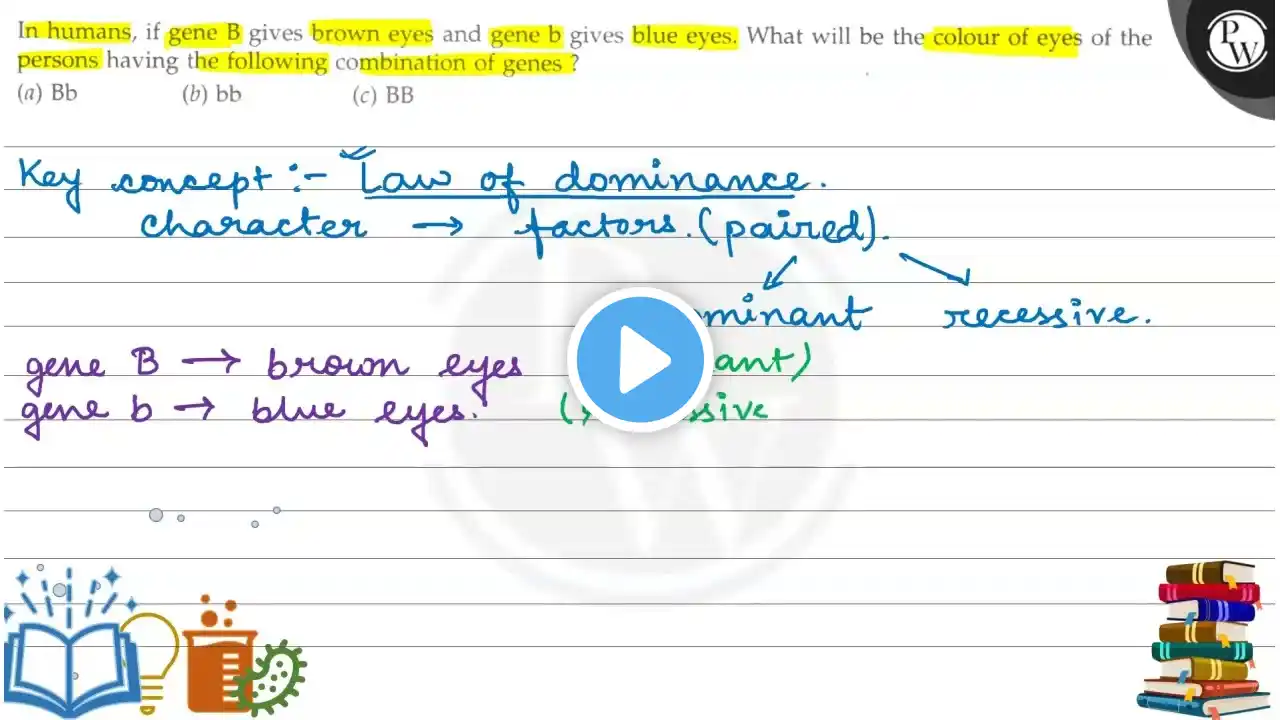 In humans, if gene B gives brown eyes and gene b gives blue eyes. What will be the colour of eyes of the
persons having the following combination of genes ?
(a) Bb (b) bb (c) BB
PW
Key concept :- Law of dominance.
character → factors. (paired).
minant recessive.
gene B → brown eyes ant)
gene b → blue eyes. ssive